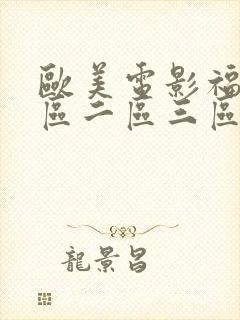 歐美電影福
區二區三區
龍景昌